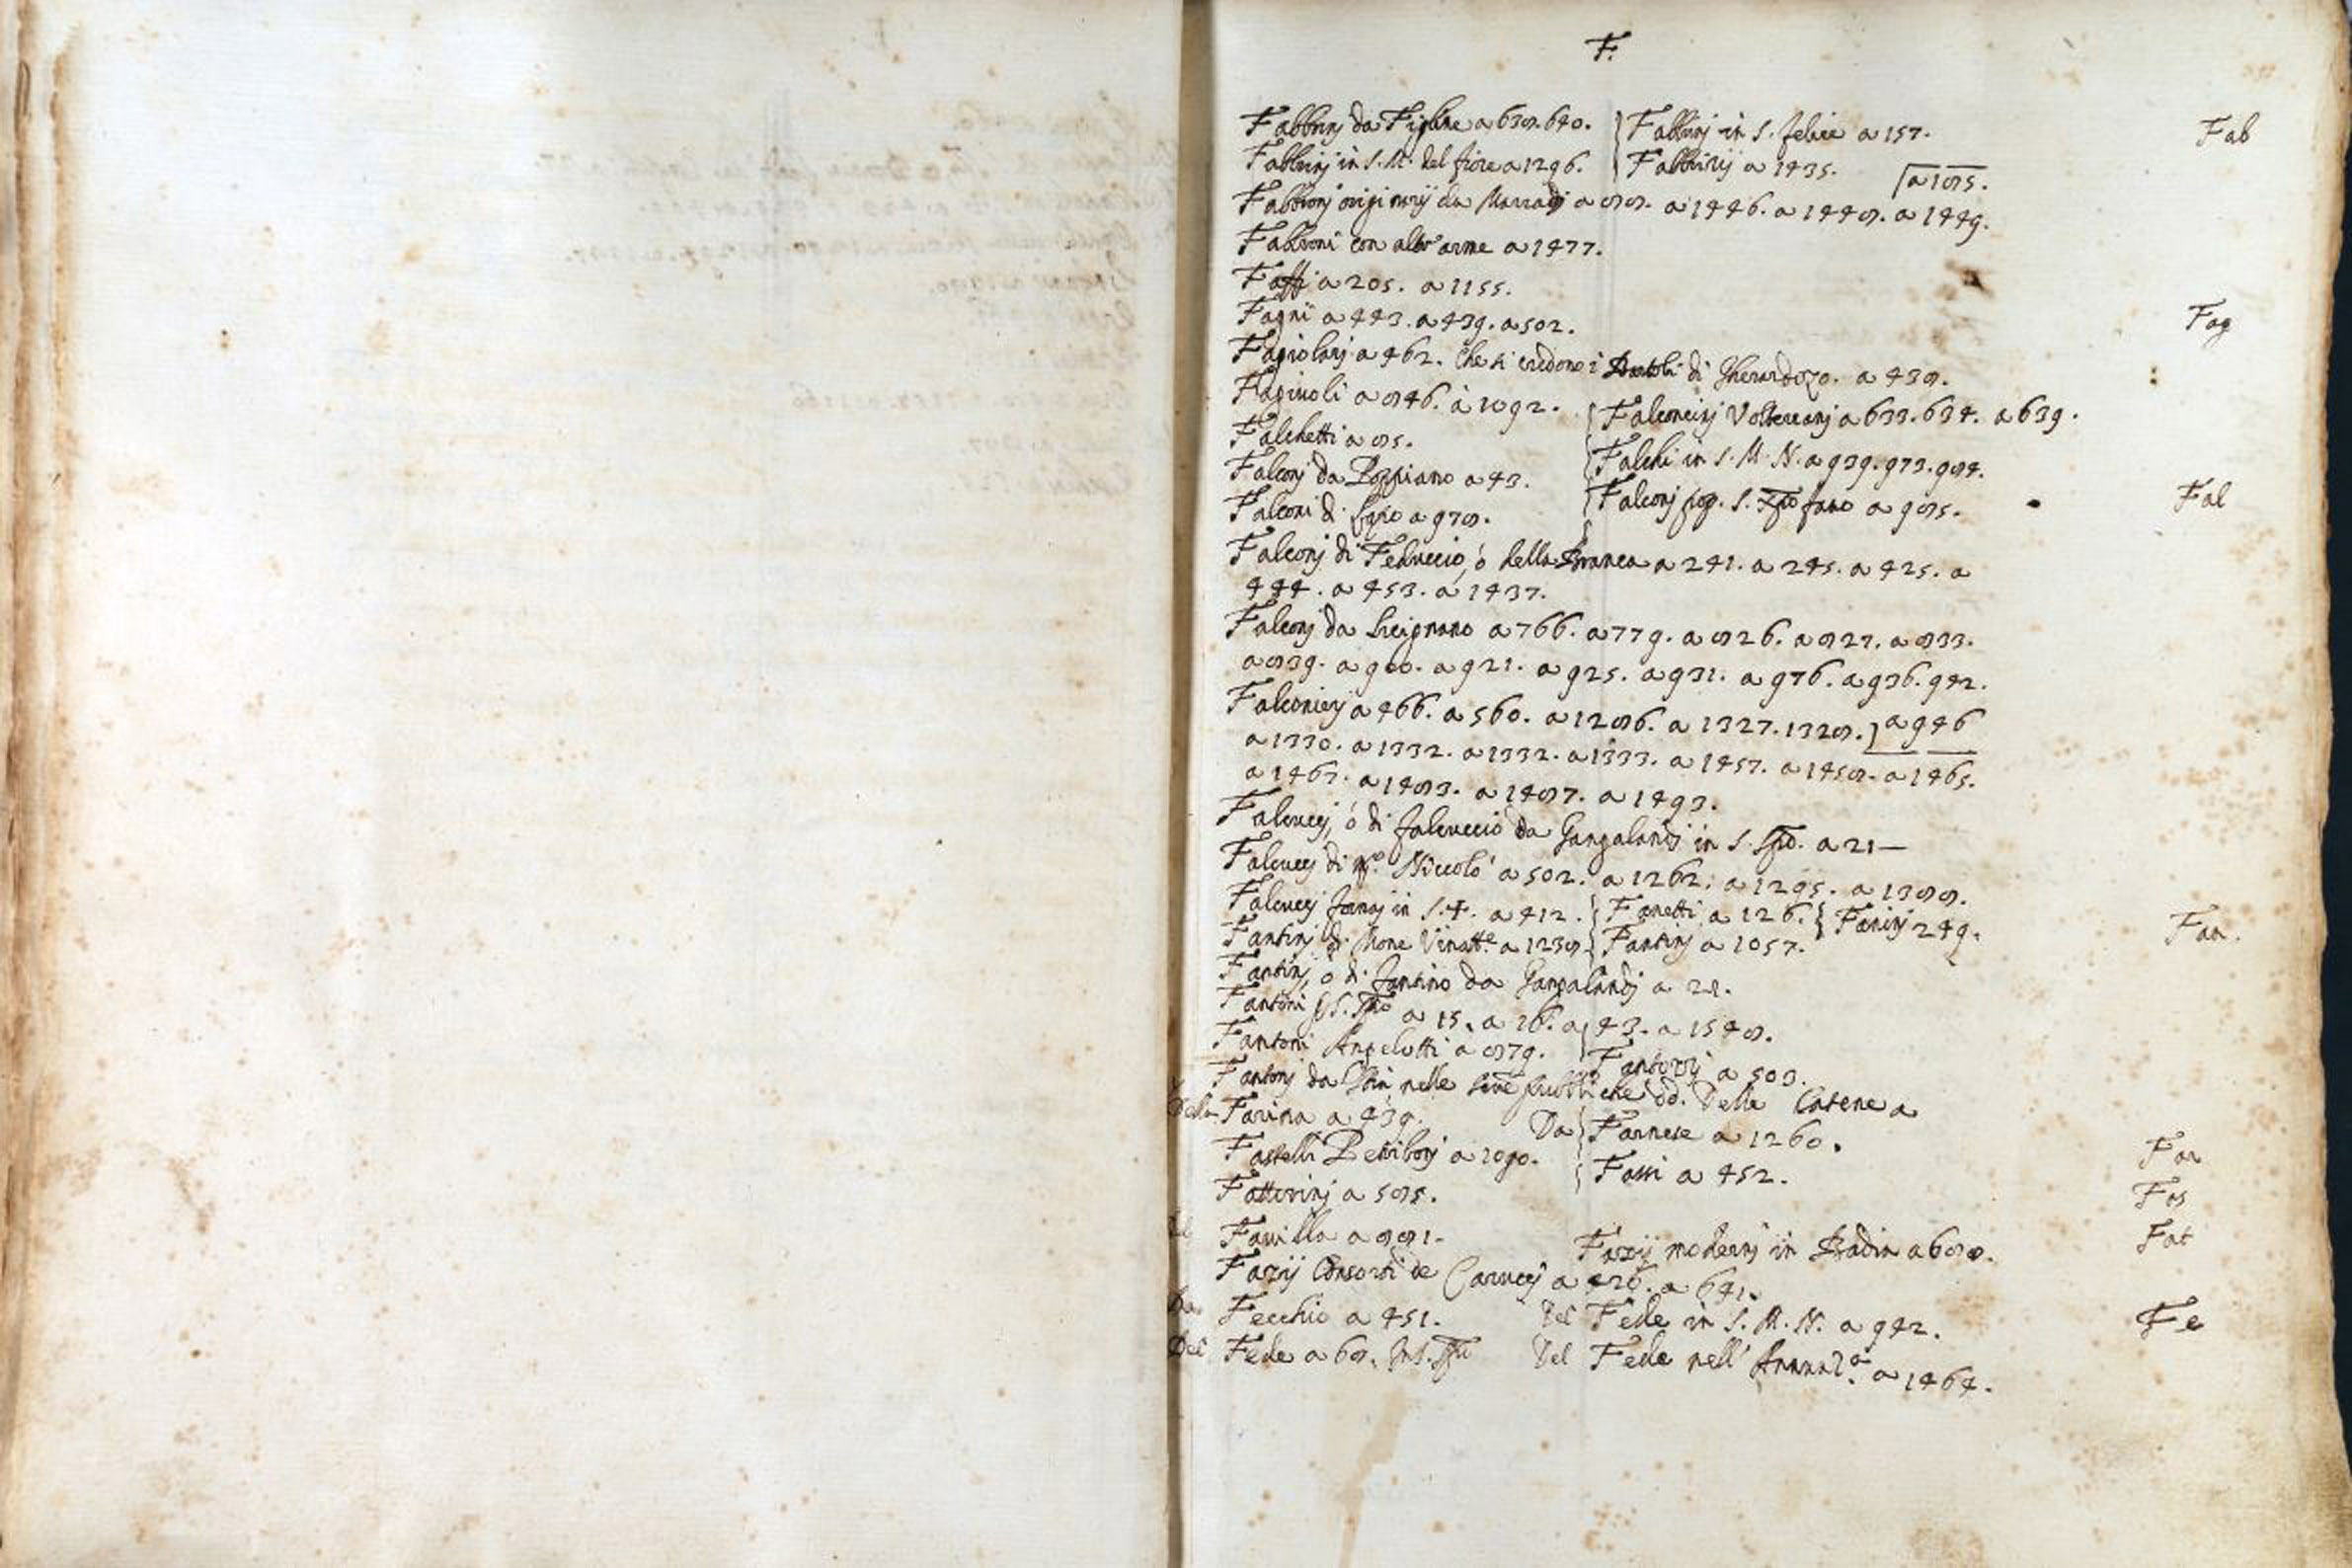 F.
Fabbrinj da Figline a 638. 640. Fabbrinj in S. felice a 157. Fab
Fabbrinj in S. M. del fiore a 1296. Fabbrinij a 1435.
a 185.
Fabbronj originarij da Marradj a 88. a 1446. a 1448. a 1449.
Fabbroni con altr'arme a 1477.
Faffi a 205. a 1155.
Fagni a 443. a 439. a 502. Fag
Fagiolarj a 462. che si credono i Bartoli di Gherardozo. a 438.
Fagiuoli a 846. à 1092.
Falconcinj Volterranj a 633. 634. a 639.
Falchetti a 85. Falchi in S. M. N. a 939. 973. 984.
Falconj da Poppiano a 43. Falconj pop. S. a 985. Fal
Falconi di a 978.
Falconj di Feduccio, ó della Branca a 241. a 245. a 425. a
444. a 453. a 1437.
Falconj da Lucignano a 766. a 779. a 826. a 827. a 833.
a 839. a 900. a 921. a 925. a 931. a 976. a 936. 942.
a 946
Falconierj a 466. a 560. a 1286. a 1327. 1328.
a 1330. a 1332. a 1332. a 1333. a 1457. a 1458. a 1465.
a 1467. a 1483. a 1487. a 1493.
Falcuccj, ó di falcuccio da Gangalandi in S. Spo. a 21—
Falcuccj di Mo. Niccolò a 502. a 1262. a 1295. a 1388.
Falcuccj in S. +. a 412. Fanetti a 126. Faninj 249. Fan.
Fantinj di Mone a 1238. Fantinj a 1057.
Fantinj, o di fantino da Gangalandj a 21.
Fantoni S. Spo a 15. a 26. a 43. a 1548.
Fantoni Angelotti a 879. Fantozzj a 503.
Fantonj da nelle pubbliche dd. Delle Catene a
Della Farina a 439. Da Farnese a 1260.
Fastelli Petribonj a 1090. Fassi a 452. Far
Fattorinj a 585. Fas
Favilla a 881. Fazzij modernj in Badia a 688. Fat
Fazij Consorti de Caruccj a 426. a 641.
Da Fecchio a 451. Del Fede in S. M. N. a 942. Fe
Del Fede a 68. In S. Spo Del Fede nell' a 1464.